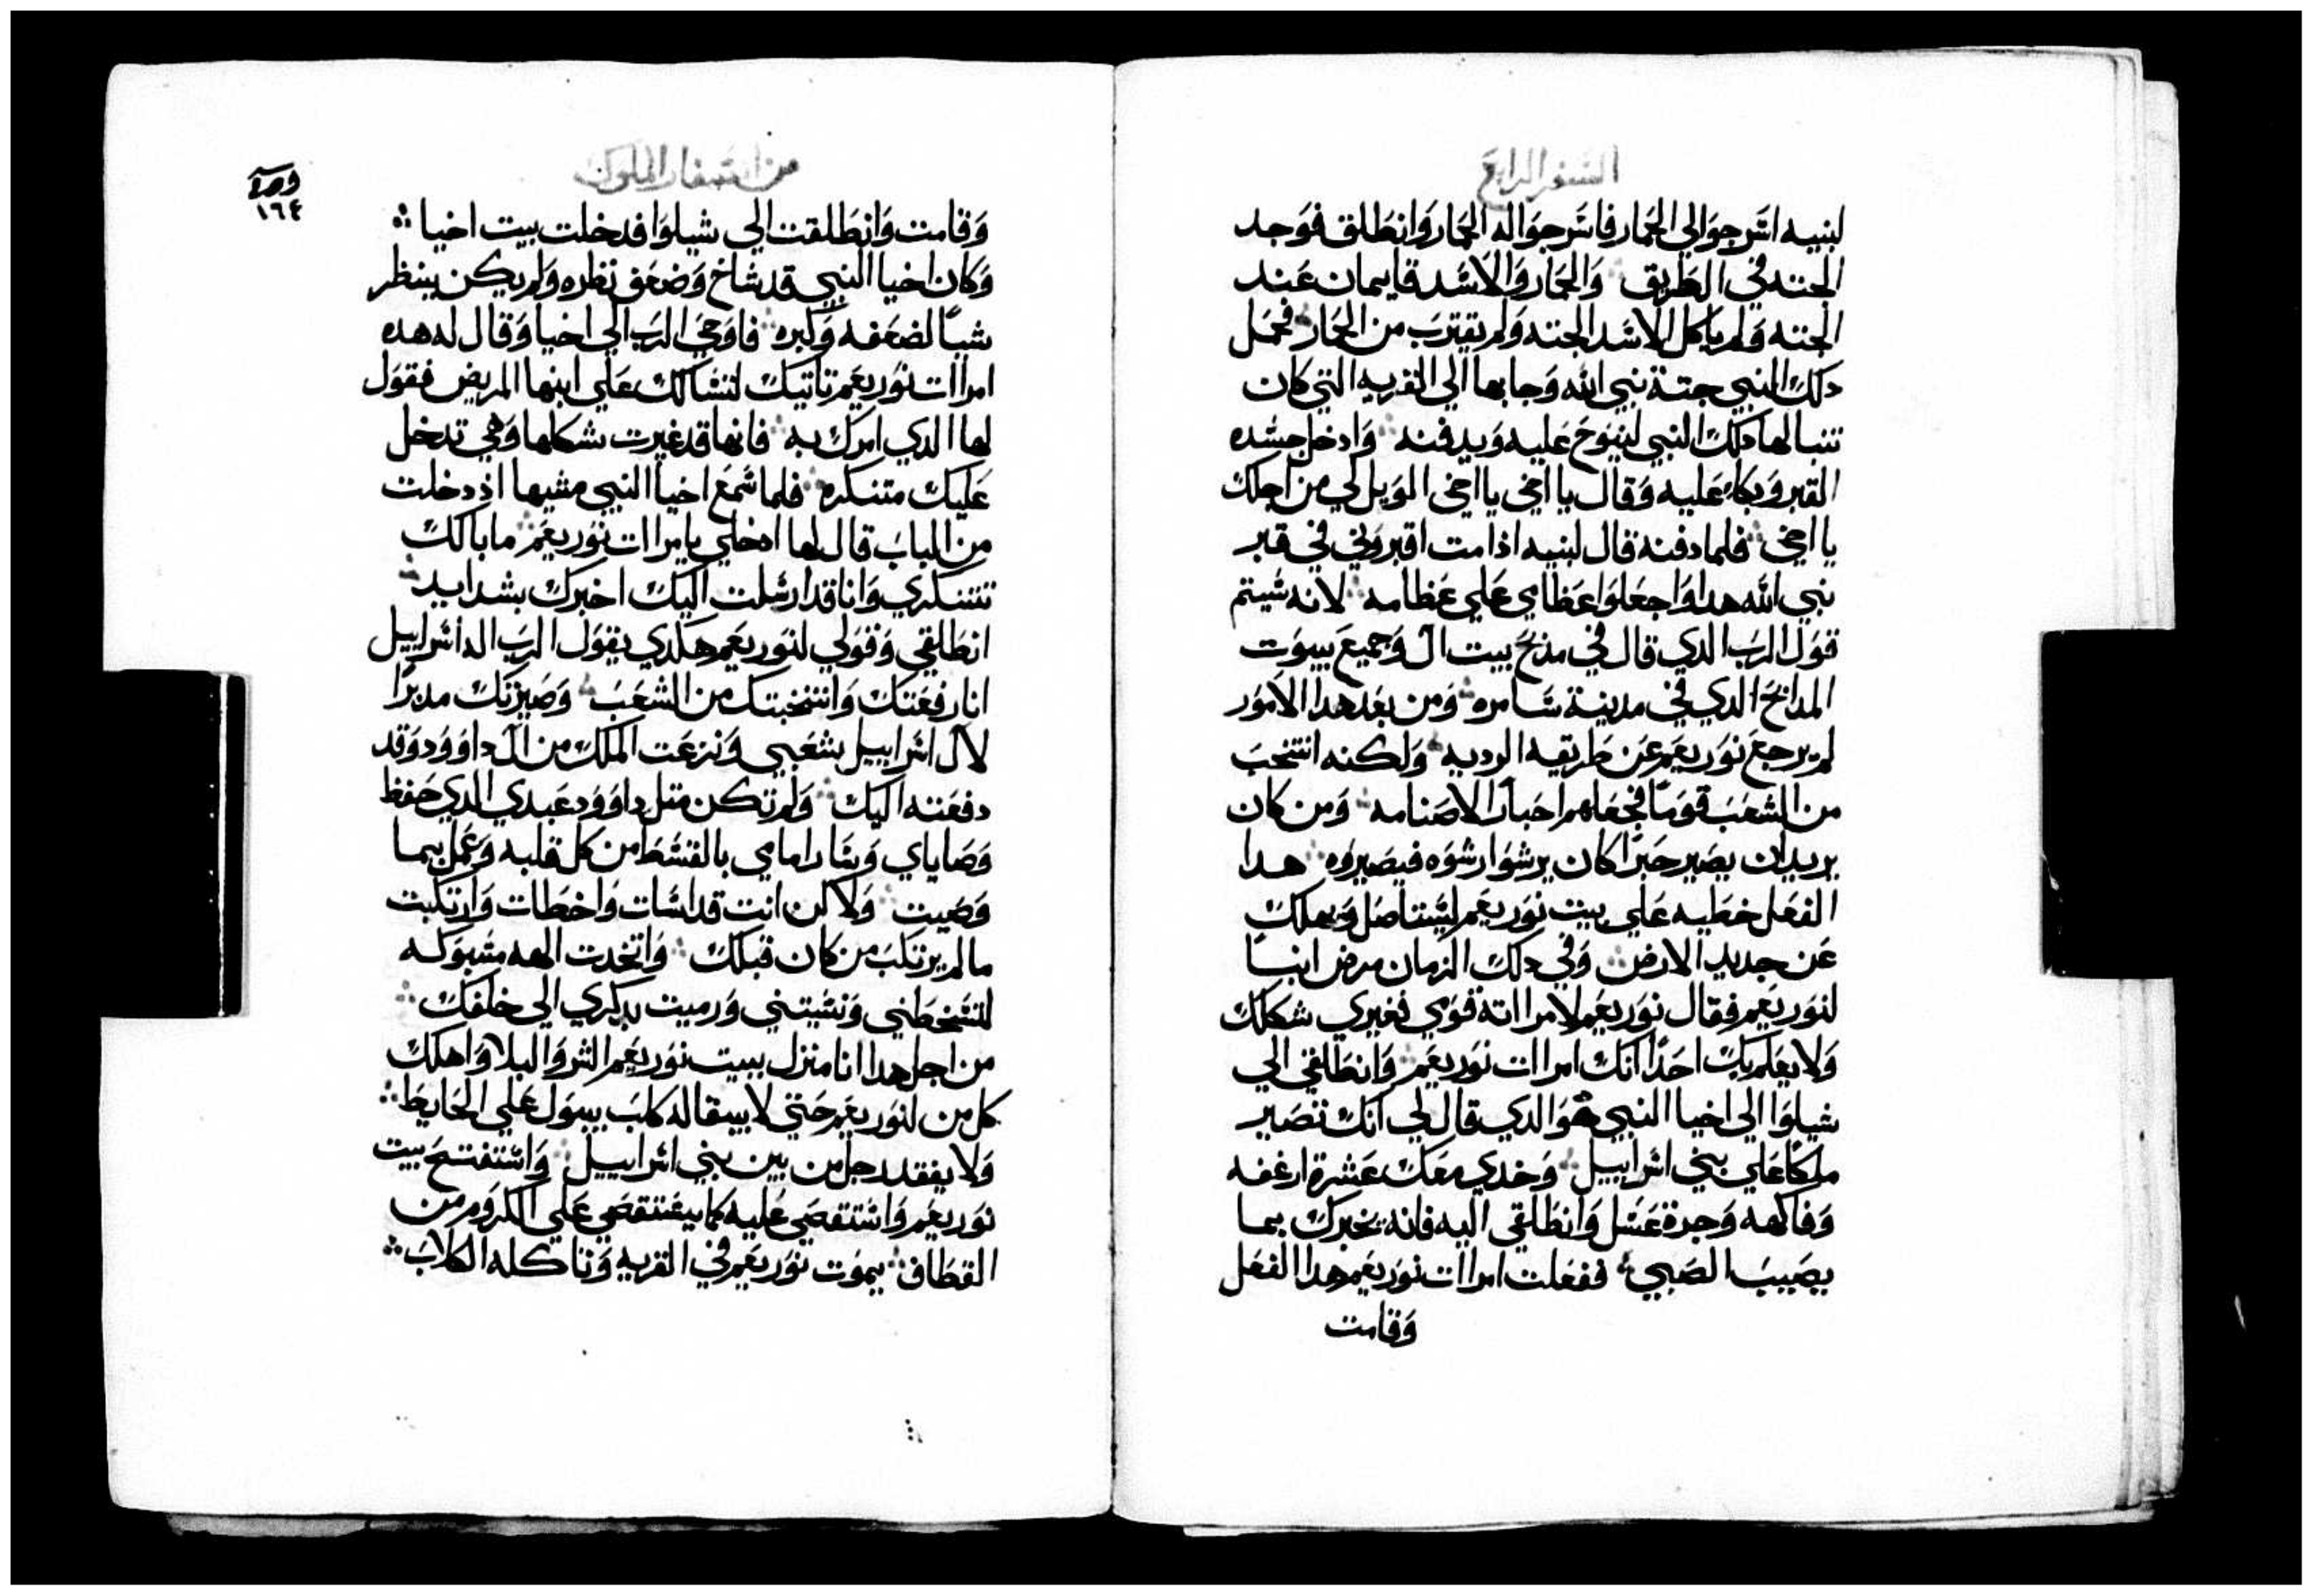 السفر الرابع
لبنيه اسرجوا لي الحمار فاسرجوا له الحمار وانطلق فوجد
الجته في الطريق والحمار والاسد قايمان عند
الجته ولم ياكل الاسد الجته ولم يقترب من الحمار فحمل
دلك النبي جتة نبي الله وجابها الي القريه التي كان
تنبا لها دلك النبي لينوح عليه ويدفنه وادخل جسده
القبر وبكا عليه وقال يا اخي يا اخي الويل لي من اجلك
يا اخي فلما دفنه قال لبنيه اذا مت اقبروني في قبر
نبي الله هدا واجعلوا عظامي علي عظامه لانه سيتم
قول الرب الدي قال في مدبح بيت ال وجميع بيوت
المدابح الدي في مدينة سامره ومن بعد هدا الامور
لم يرجع نوربعم عن طريقه الرديه ولكنه انتخب
من الشعب قوما فجعلهم احبار الاصنامه ومن كان
يريد ان يصير حبرا كان يرشوا رشوه فيصيروه هدا
الفعل خطيه علي بيت نوربعم ليستاصل ويهلك
عن جديد الارض وفي دلك الزمان مرض ابنا
لنوربعم فقال نوربعم لامراته قومي فغيري شكلك
ولا يعلم بك احدا انك امراات نوربعم وانطلقي الي
شيلوا الي اخيا النبي هو الدي قال لي انك تصير
ملكا علي بني اسراييل وخدي معك عشرة ارغفه
وفاكهه وجرة عسل وانطلقي اليه فانه يخبرك بما
يصيب الصبي ففعلت امراات نوربعم هدا الفعل
وقامت
من اسفار الملوك
١٦٤
وقامت وانطلقت الي شيلوا فدخلت بيت اخيا
وكان اخيا النبي قد شاخ وضعف نظره ولم يكن ينظر
شيا لضعفه وكبره فاوحي الرب الي اخيا وقال له هده
امراات نوربعم تاتيك لتسالك علي ابنها المريض فقول
لها الدي امرك به فانها قد غيرت شكلها وهي تدخل
عليك متنكره فلما سمع اخيا النبي مشيها اذ دخلت
من الباب قال لها ادخلي يا مراات نوربعم ما بالك
تتنكري وانا قد ارسلت اليك اخبرك بشدايد
انطلقي وقولي لنوربعم هكدي يقول الرب اله اسراييل
انا رفعتك وانتخبتك من الشعب وصيرتك مدبرا
لال اسراييل شعبي ونزعت الملك من ال داوود وقد
دفعته اليك ولم تكن متل داوود عبدي الدي حفظ
وصاياي وسار امامي بالقسط من كل قلبه وعمل بما
وصيت ولاكن انت قد اسات واخطات وارتكبت
ما لم يرتكب من كان قبلك واتخدت الهه مسبوكه
لتسخطني ونسيتني ورميت بدكري الي خلفك
من اجل هدا انا منزل ببيت نوربعم الشر والبلا واهلك
كل من لنوربعم حتي لا يبقا له كلب يبول علي الحايط
ولا يفقد رجل من بين بني اسراييل واستفتح بيت
نوربعم واستقصي عليه كما يستقصي علي الكروم من
القطاف يموت نوربعم في القريه وتاكله الكلاب